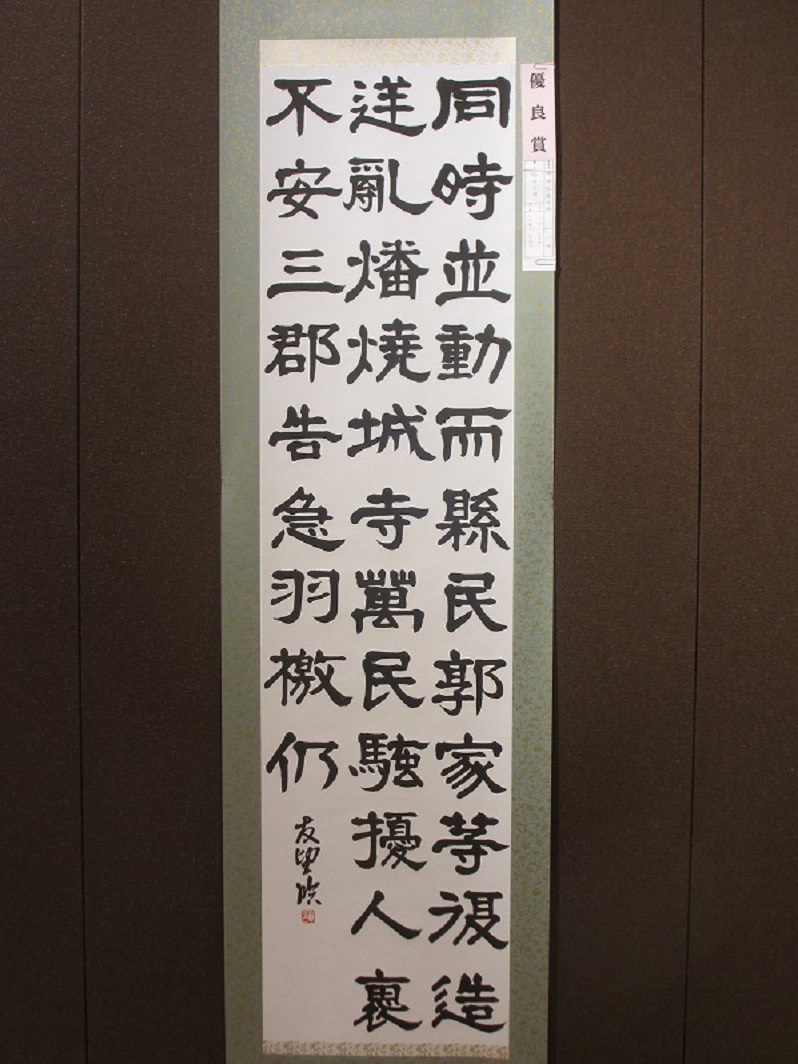 同時並動而縣民郭家等復造
逆亂燔燒城寺萬民騷擾人裹
不安三郡告急羽檄仍
優良賞